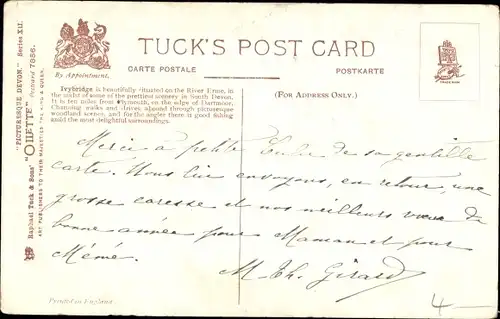 TUCK'S POST CARD
CARTE POSTALE
POSTKARTE
By Appointment.
(FOR ADDRESS ONLY.)
Ivybridge is beautifully situated on the River Erme, in
the midst of some of the prettiest scenery in South Devon.
It is ten miles from Plymouth, on the edge of Dartmoor.
Charming walks and drives abound through picturesque
woodland scenes, and for the angler there is good fishing
amid the most delightful surroundings.
Raphael Tuck & Sons' "OILETTE" Postcard 7886.
"PICTURESQUE DEVON." Series XII.
ART PUBLISHERS TO THEIR MAJESTIES THE KING & QUEEN.
Merci à petite Lulu de sa gentille
carte. Nous lui envoyons, en retour, une
grosse caresse et nos meilleurs vœux de
bonne année pour Maman et pour
Mémé.
M. Th. Girard
Printed in England.
4-